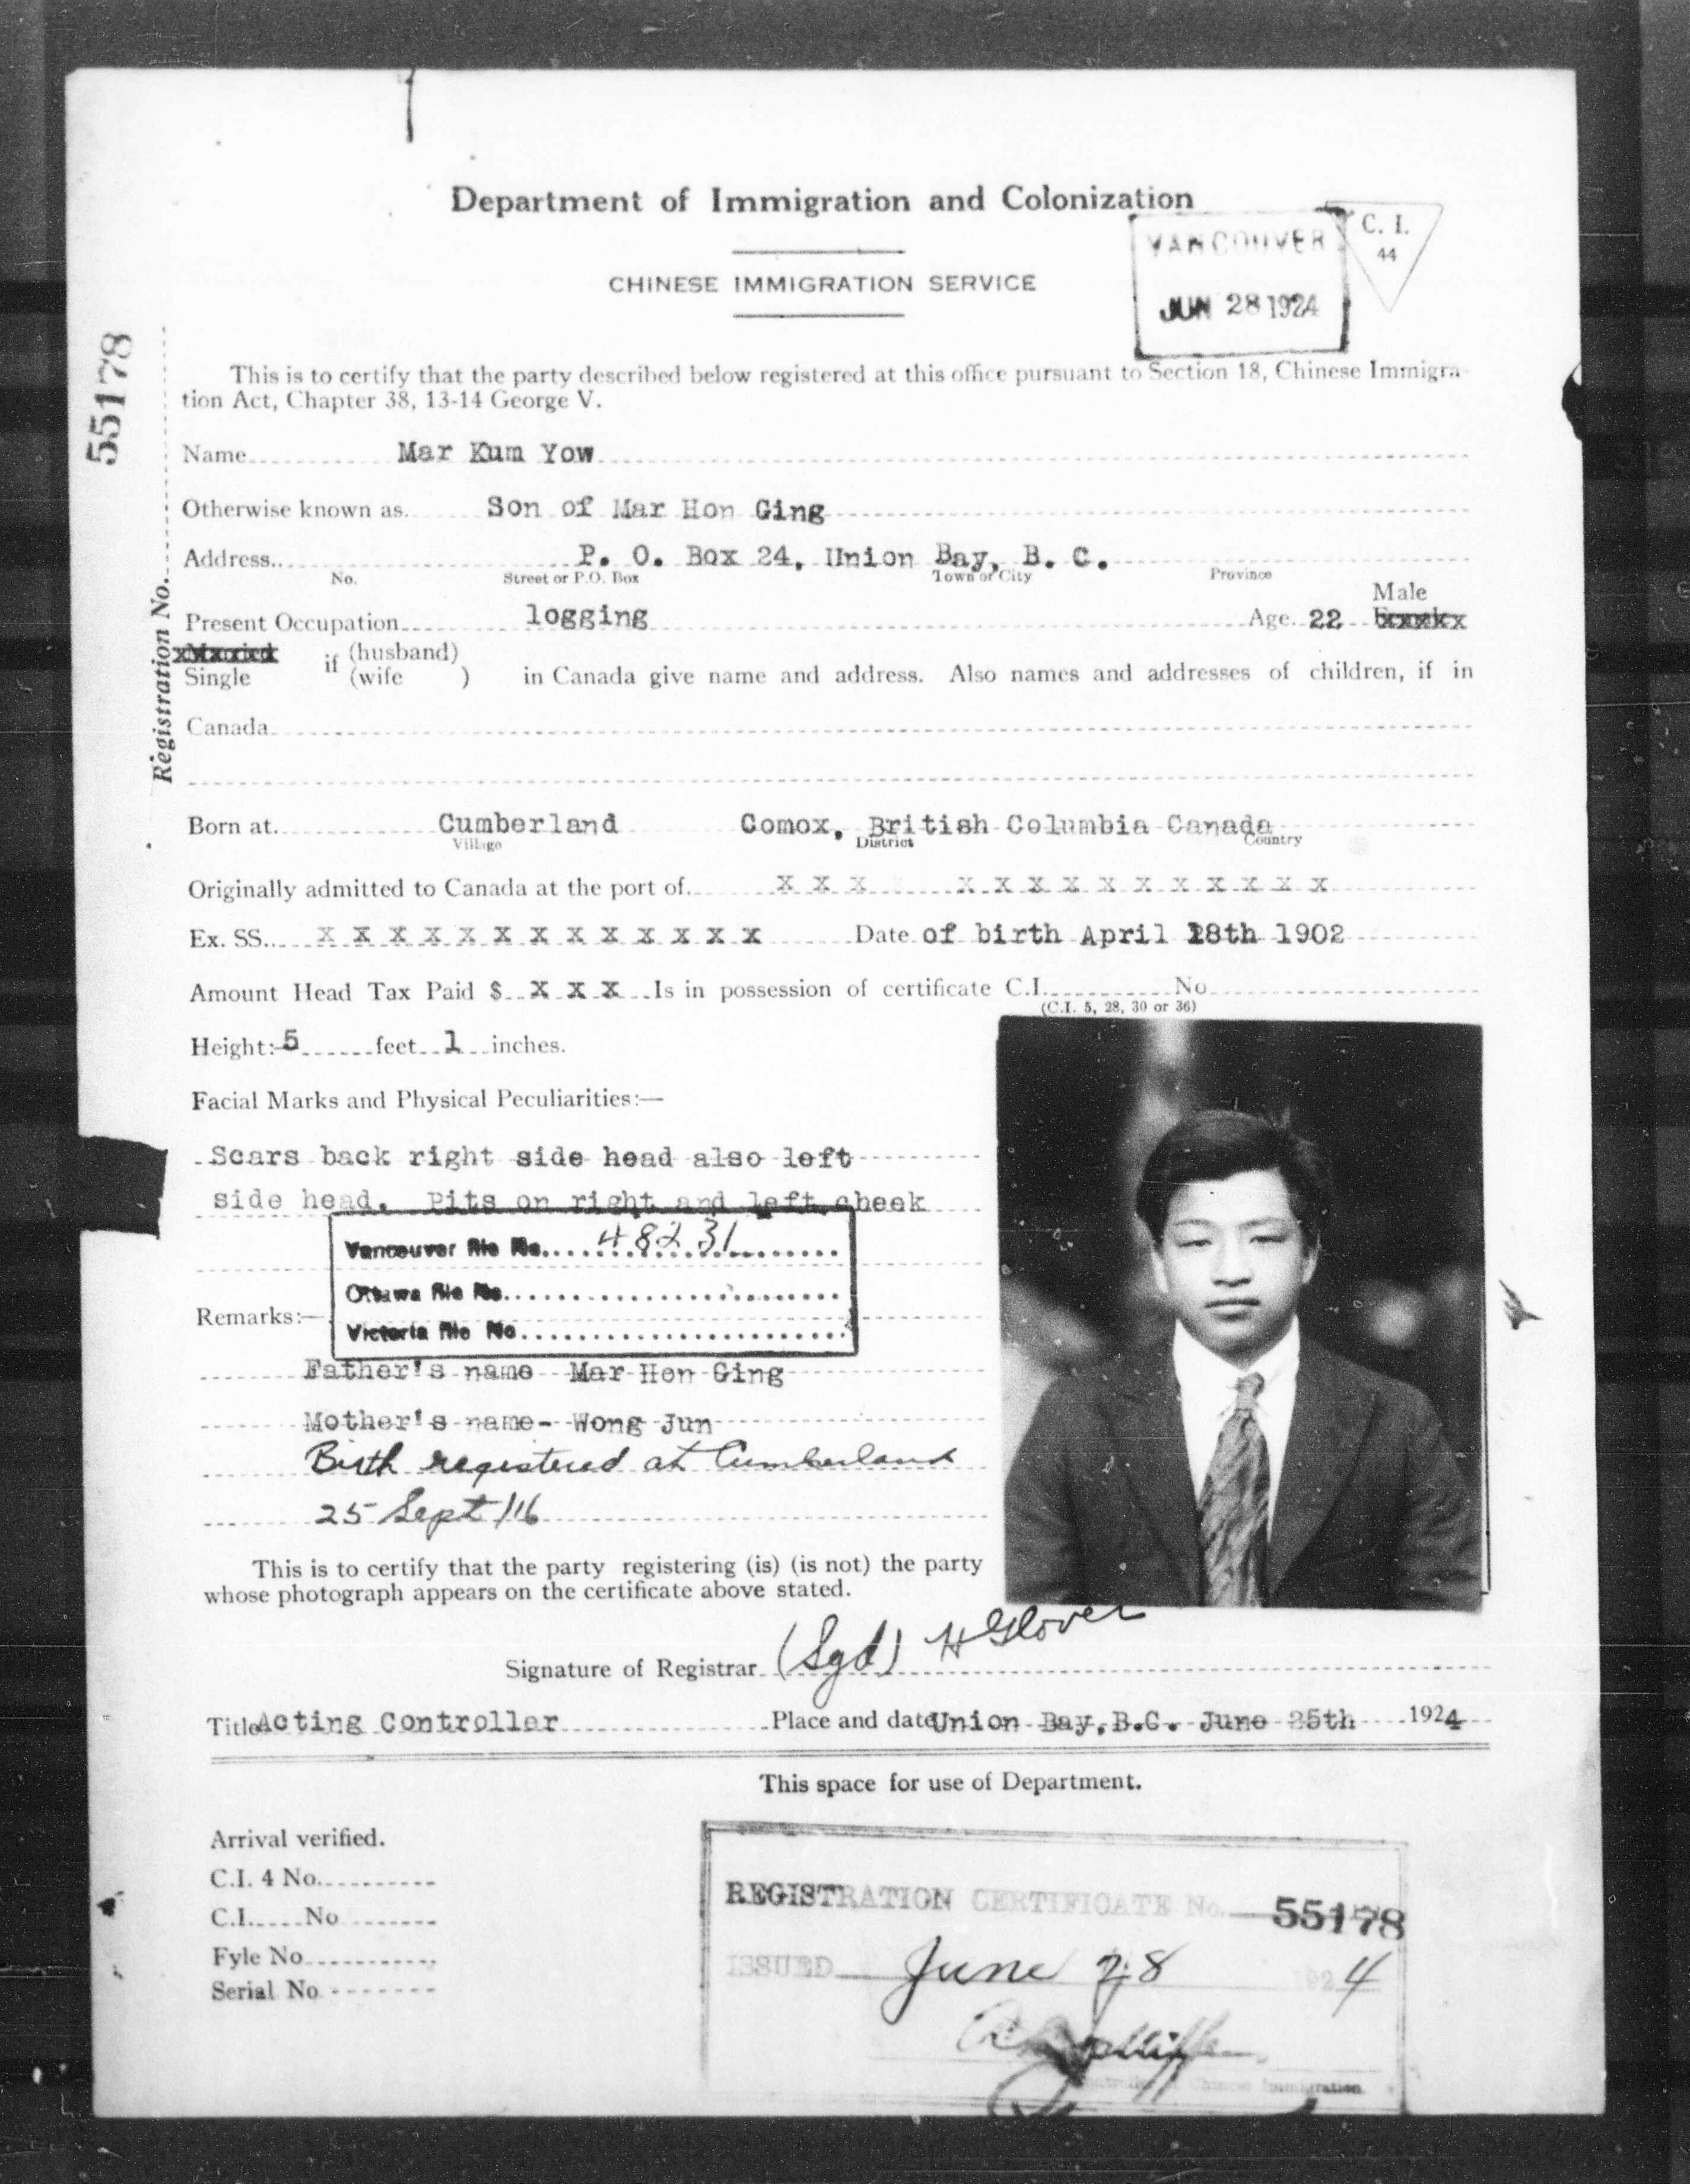 Department of Immigration and Colonization
CHINESE IMMIGRATION SERVICE
VANCOUVER
JUN 28 1924
C. I.
44
55178
Registration No.
This is to certify that the party described below registered at this office pursuant to Section 18, Chinese Immigra-
tion Act, Chapter 38, 13-14 George V.
Name Mar Kum Yow
Otherwise known as. Son of Mar Hon Ging
Address.. P. O. Box 24, Union Bay, B. C.
No. Street or P.O. Box Town or City Province
Male
Present Occupation logging Age 22 xxxxx
Single if (husband)
(wife ) in Canada give name and address. Also names and addresses of children, if in
Canada
Born at. Cumberland Comox, British Columbia Canada
Village District Country
Originally admitted to Canada at the port of. x x x x x x x x x x x x x x
Ex. SS. x x x x x x x x x x x x x Date of birth April 18th 1902
Amount Head Tax Paid $ x x x Is in possession of certificate C.I. No.
(C.I. 5, 28, 30 or 36)
Height:- 5 feet 1 inches.
Facial Marks and Physical Peculiarities:—
Scars back right side head also left
side head. Pits on right and left cheek
Vancouver file No. 48231
Ottawa file No.
Victoria file No.
Remarks:—
Father's name Mar Hon Ging
Mother's name- Wong Jun
Birth registered at Cumberland
25 Sept/16
This is to certify that the party registering (is) (is not) the party
whose photograph appears on the certificate above stated.
Signature of Registrar (Sgd) H Glover
Title Acting Controller Place and date Union Bay, B.C. June 25th 1924
This space for use of Department.
Arrival verified.
C.I. 4 No.
C.I. No
Fyle No
Serial No
REGISTRATION CERTIFICATE No. 55178
ISSUED June 28 1924
Controller of Chinese Immigration